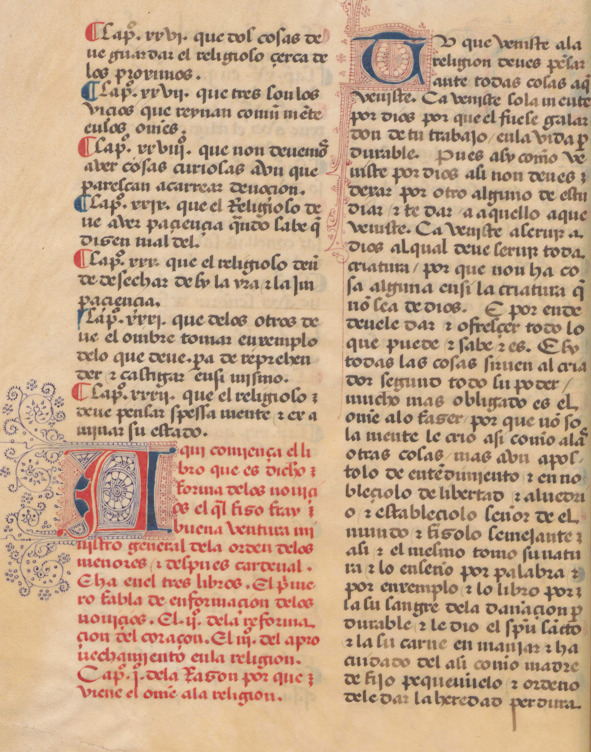 Cap.º xxvi. que dos cosas de
ue guardar el religioso çerca de
los proximos.
Cap.º xxvii. que tres son los
viçios que reynan comũ mẽte
en los omẽs.
Cap.º xxviii. que non deuemos
aver cosas curiosas avn que
parescan acarrear deuoçion.
Cap.º xxix. que el Religioso de
ue aver paçiençia q̃ndo sabe q̃
disen mal del.
Cap.º xxx. que el religioso deue
de desechar de sy la yra τ la jm
paçiençia.
Cap.º xxxi. que delos otros de
ue el ombre tomar enxemplo
delo que deue. pa de reprehen
der τ castigar ensi mismo.
Cap.º xxxii. que el religioso τ
deue pensar spessa mente τ exa
minar su estado.
Aqui comiença el li
bro que es dicho τ
forma delos nouiçi
os el q̃l fiso fray
buena ventura mi
nistro general dela orden delos
menores τ despues cardenal.
E ha enel tres libros. El p̃me
ro fabla de enformaçion delos
nouiçios. El .ij. dela reforma
çion del coraçon. El .iij. del apro
uechamiento enla religion.
Cap.º j. dela Rason por que τ
viene el ome ala religion.
Tu que veniste ala
religion deues pẽsar
ante todas cosas aq̃
veniste. Ca veniste sola mente
por dios por que el fuese galar
don de tu trabajo / enla vida p
durable. Pues asy como ve
niste por dios asi non deues τ
dexar por otro alguno de estu
diar / τ te dar / a aquello aque
veniste. Ca veniste a seruir a.
dios al qual deue seruir toda.
criatura / por que non ha co
sa alguna ensi la criatura q̃
nõ sea de dios. E por ende
deuele dar τ ofresçer todo lo
que puede τ sabe τ es. E sy
todas las cosas siruen al cria
dor segund todo su poder /
mucho mas obligado es el
ome alo faser / por que nõ so
la mente le crio asi como alas
otras cosas / mas avn apos
tolo de entẽdimiento τ en no
bleçiolo de libertad τ aluedri
o τ establesçiolo señor de el.
mundo τ fisolo semejante τ
asi τ el mesmo tomo su natu
ra τ lo enseño por palabra τ
por enxemplo τ lo libro por τ
la su sangre dela danaçion p
durable τ le dio el sp̃u sãcto
τ la su carne en manjar τ ha
cuidado del asi como madre
de fijo pequeñuelo τ ordeno
dele dar la heredad perdura.